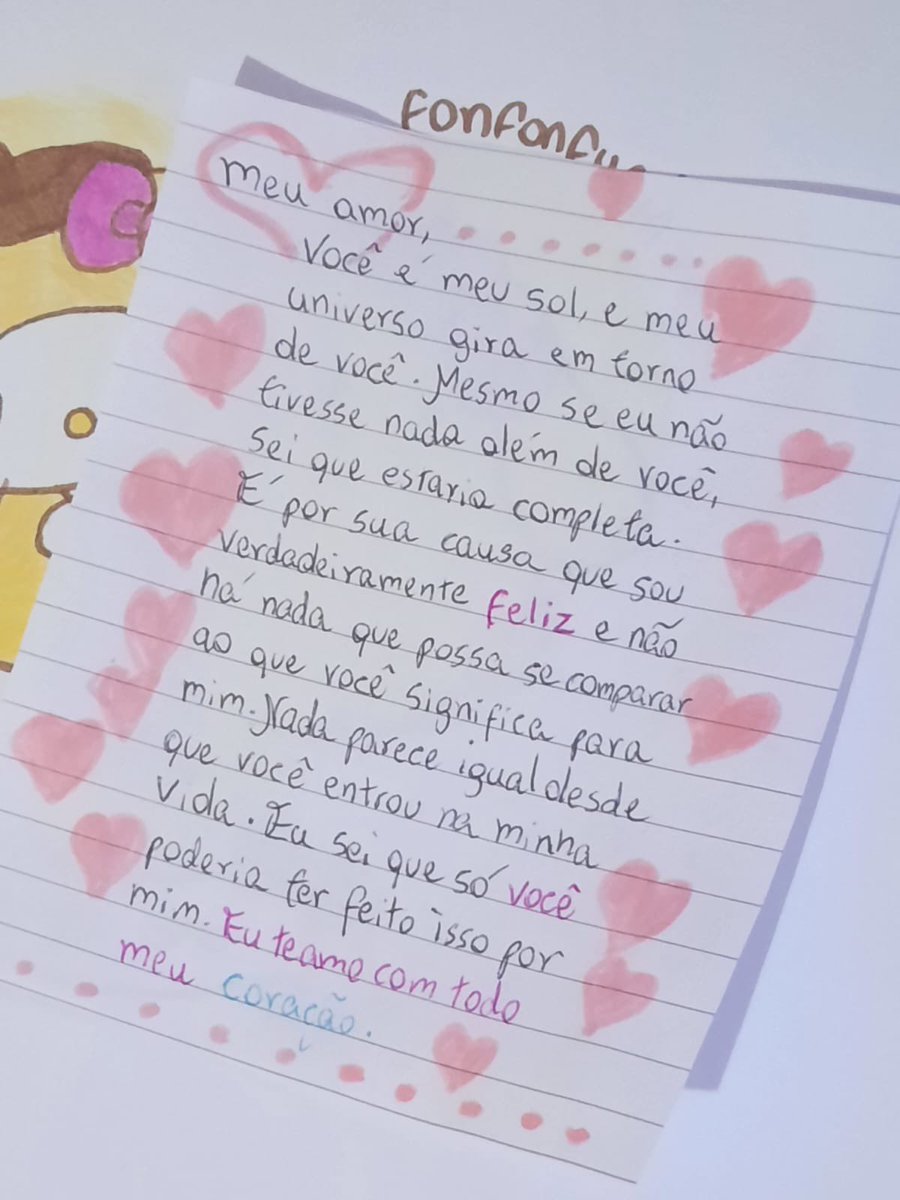 Fonfonfu
meu amor,
Você é meu sol, e meu
universo gira em torno
de você. Mesmo se eu não
tivesse nada além de você,
sei que estaria completa.
É por sua causa que sou
verdadeiramente feliz e não
há nada que possa se comparar
ao que você significa para
mim. Nada parece igual desde
que você entrou na minha
vida. Eu sei que só você
poderia ter feito isso por
mim. Eu te amo com todo
meu coração.